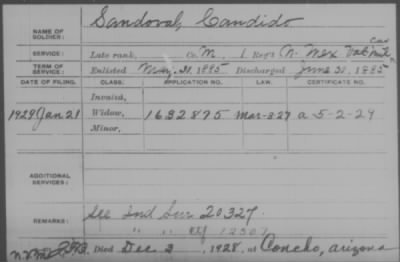 NAME OF SOLDIER: Sandoval, Candido
SERVICE: Late rank, Co. M, 1 Reg't N. Mex Cav
TERM OF SERVICE: Enlisted May 31, 1885 Discharged June 31, 1885
DATE OF FILING. CLASS. APPLICATION NO. LAW. CERTIFICATE NO.
Invalid,
1929 Jan 21 Widow, 1632875 Mar-3-27 a 5-2-29
Minor,
ADDITIONAL SERVICES:
REMARKS: See Ind Sur 20327
" " Ctf 12307
Died Dec 3, 1928, at Concho, Arizona